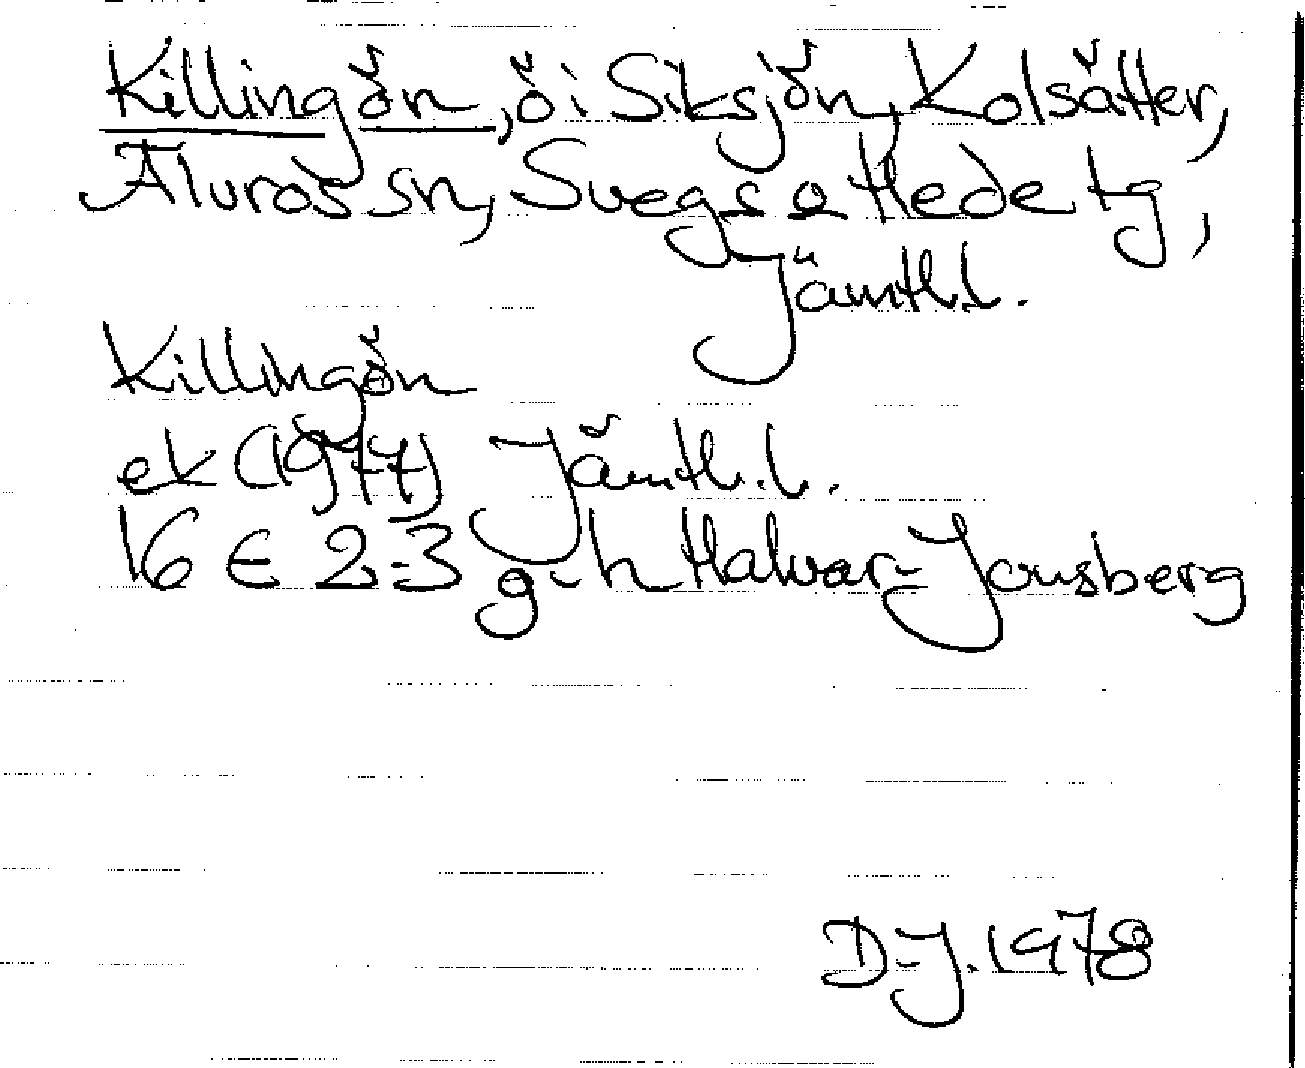 Killingön, ö i Siksjön, Kolsätter,
Älvros sn, Svegs o Hede tg,
Jämtl.l.
Killingön
ek (1977) Jämtl.l.
16 E 2-3 g-h Halvar-Jonsberg
D-J. 1978